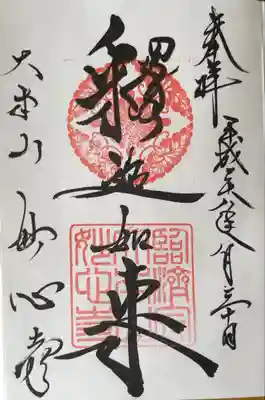 奉拝
平成二十八年八月三十日
釋迦如来
大本山
妙心寺
臨済宗
妙心寺